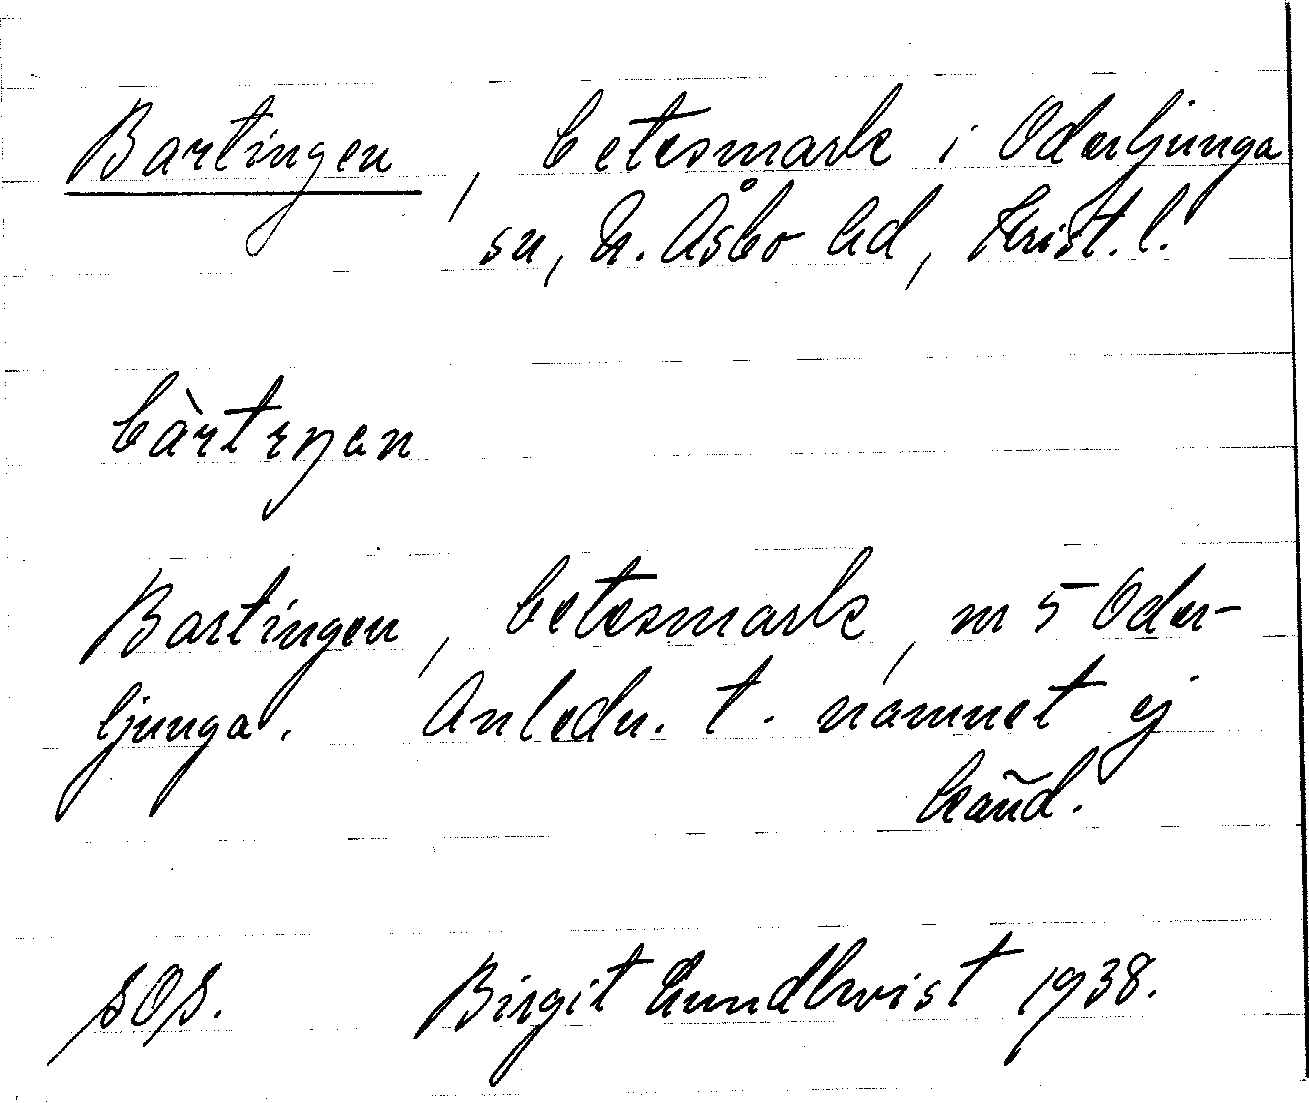 Bartingen, betesmark i Oderljunga
sn, N. Åsbo hd, Krist. l.
bàrtɪŋən
Bartingen, betesmark, nr 5 Oder-
ljunga. Anledn. t. namnet ej
känd.
SOS. Birgit Lundkvist 1938.